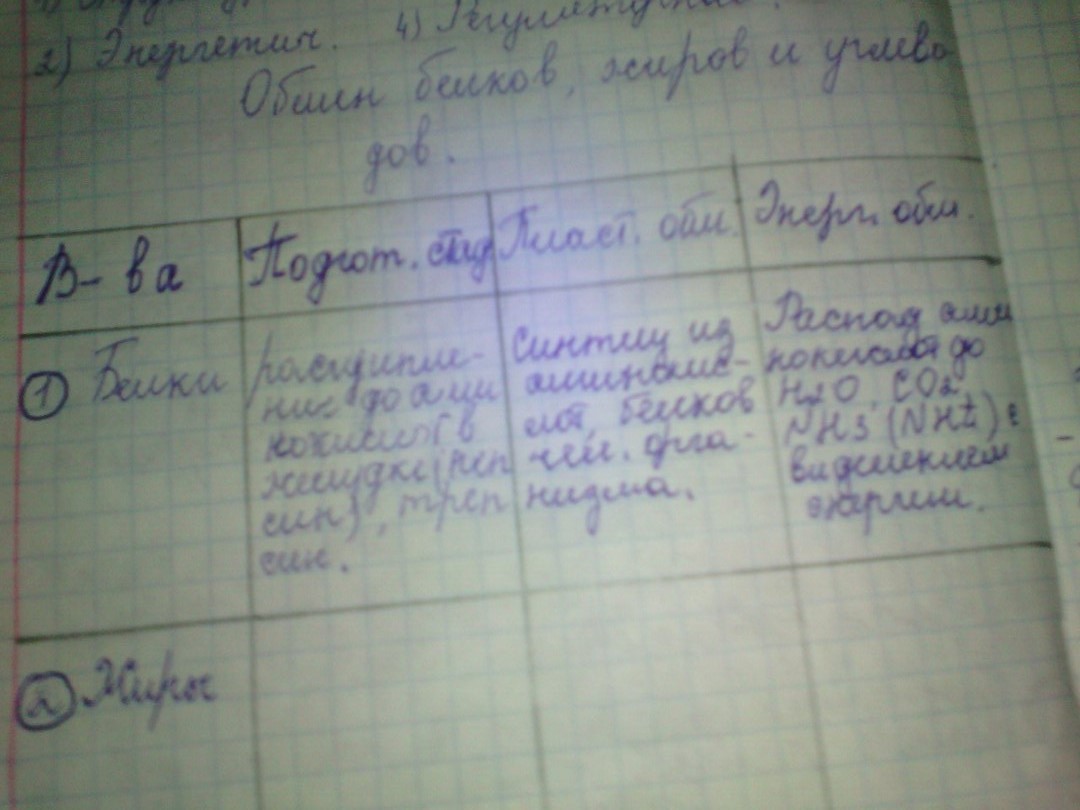 2) Энергетич. 4) Регуляторная.
Обмен белков, жиров и углево
дов.
В-ва
Подгот. стад
Пласт. обм.
Энерг. обм.
① Белки
расщипле-
ние до ами
нокислот в
желудке (пеп
син), трип
син.
Синтез из
аминокис-
лот, белков
чел. орга-
низма.
Распад ами
нокислот до
H2O, CO2,
NH3 (NH4) с
выделением
энергии.
② Жиры